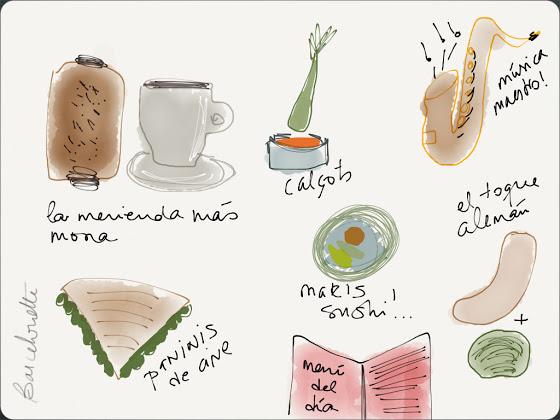 la merienda más
mona
calçots
música
maestro!
el toque
alemán
+
makis
sushi!...
pininis
de ave
menú
del
día
Barcelonette